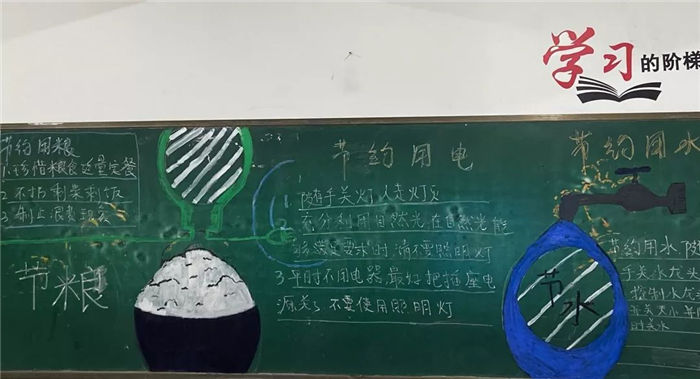 学习的阶梯
节约用粮
1.珍惜粮食适量定餐
2.不扔剩菜剩饭
3.制止浪费
节粮
节约用电
1.随手关灯人走灯灭
2.充分利用自然光,在自然光能
时,请不要照明灯
3.平时不用电器,最好把插座电
源关了不要使用照明灯
节约用水
节水
节约用水随
手关水龙头
控制水龙头
开关大小